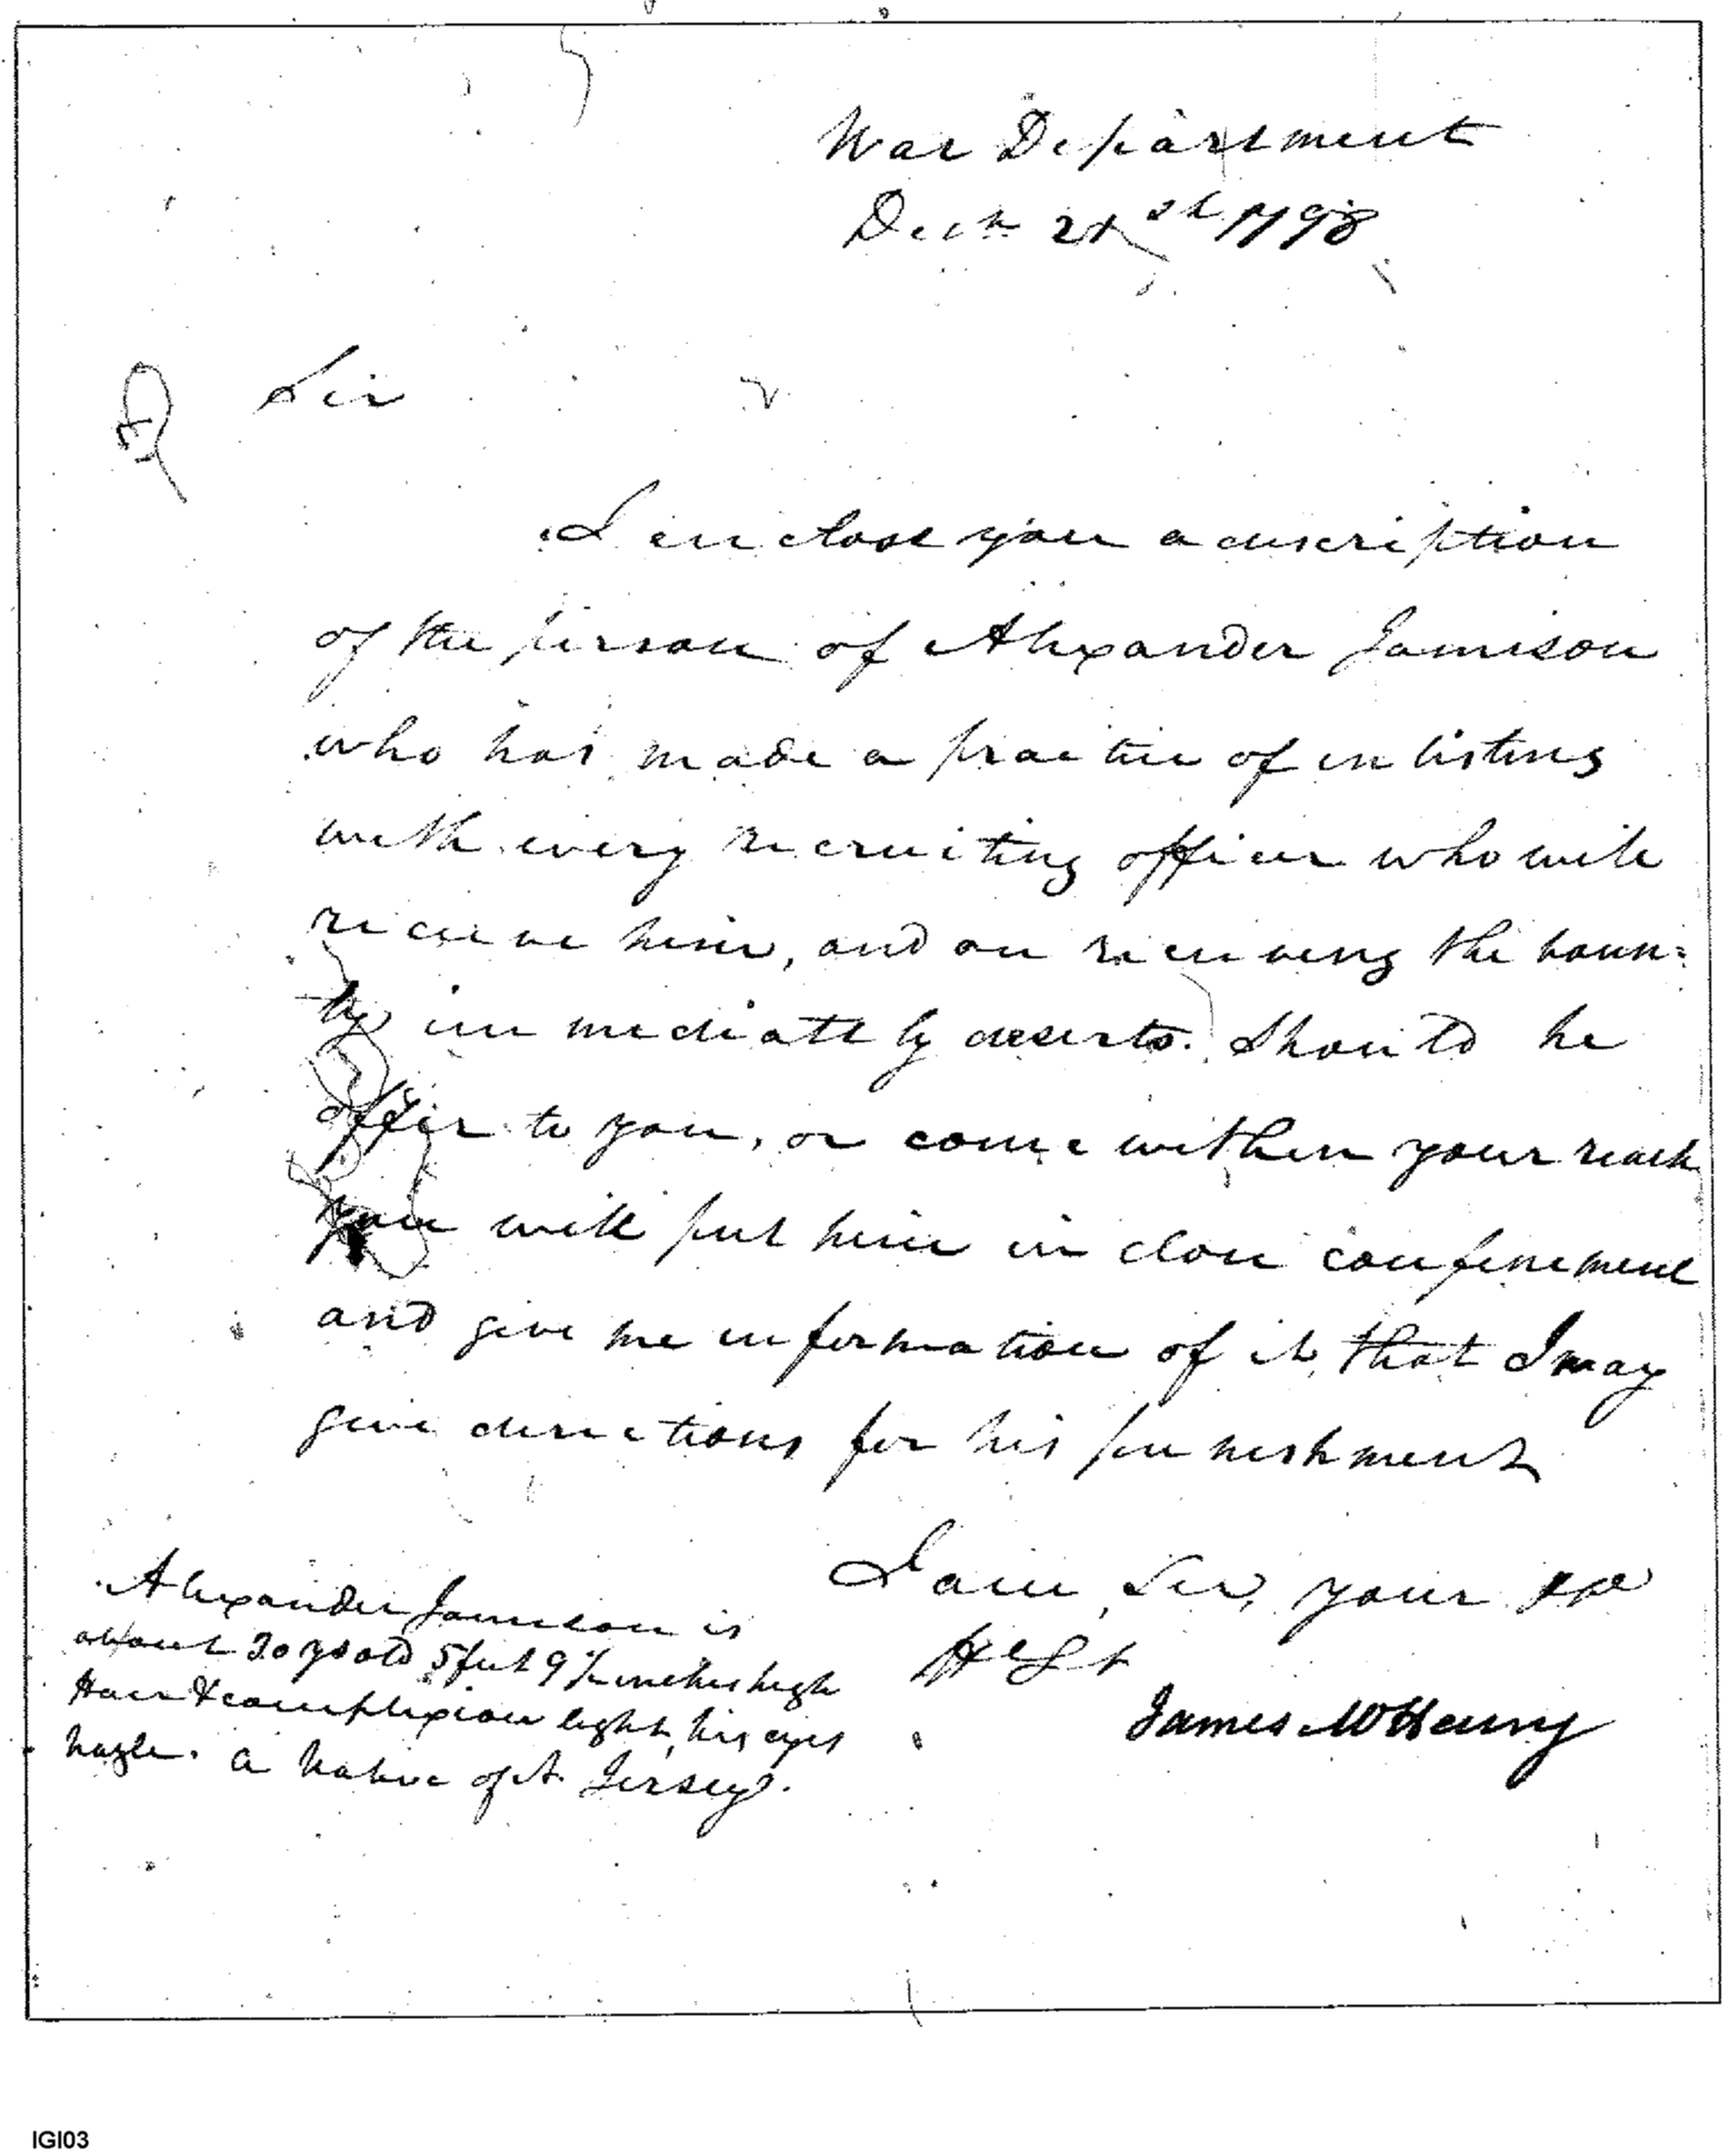 War Department
Decr 21st 1798
Sir
I enclose you a description
of the person of Alexander Jamison
who has made a practice of enlisting
with every recruiting officer who will
receive him, and on receiving the boun=
ty immediately deserts. Should he
offer to you, or come within your reach
you will put him in close confinement
and give me information of it that I may
give directions for his punishment
I am, Sir, your
Hble St
James McHenry
Alexander Jamison is
about 30 ys old 5 feet 9 ½ inches high
Hair & complexion light, his eyes
hazle. a native of N. Jersey.
IGI03